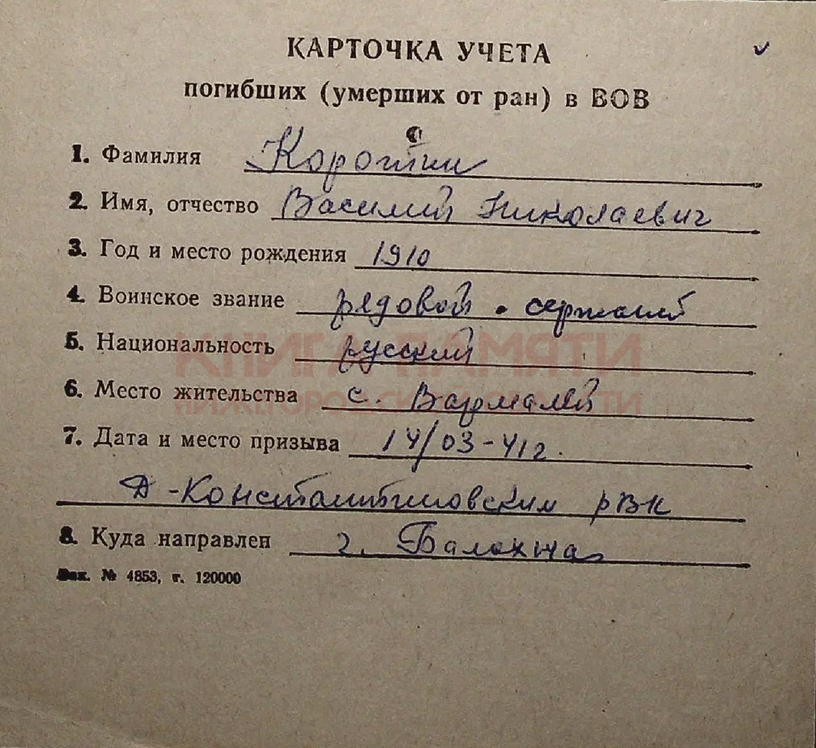 КАРТОЧКА УЧЕТА
погибших (умерших от ран) в ВОВ
1. Фамилия Коротин
2. Имя, отчество Василий Николаевич
3. Год и место рождения 1910
4. Воинское звание рядовой . сержант
5. Национальность русский
6. Место жительства с. Вармалей
7. Дата и место призыва 14/03-41г.
Д-Константиновским рвк
8. Куда направлен г. Балахна
Зак. № 4853, т. 120000
КНИГА ПАМЯТИ
НИЖЕГОРОДСКОЙ ОБЛАСТИ